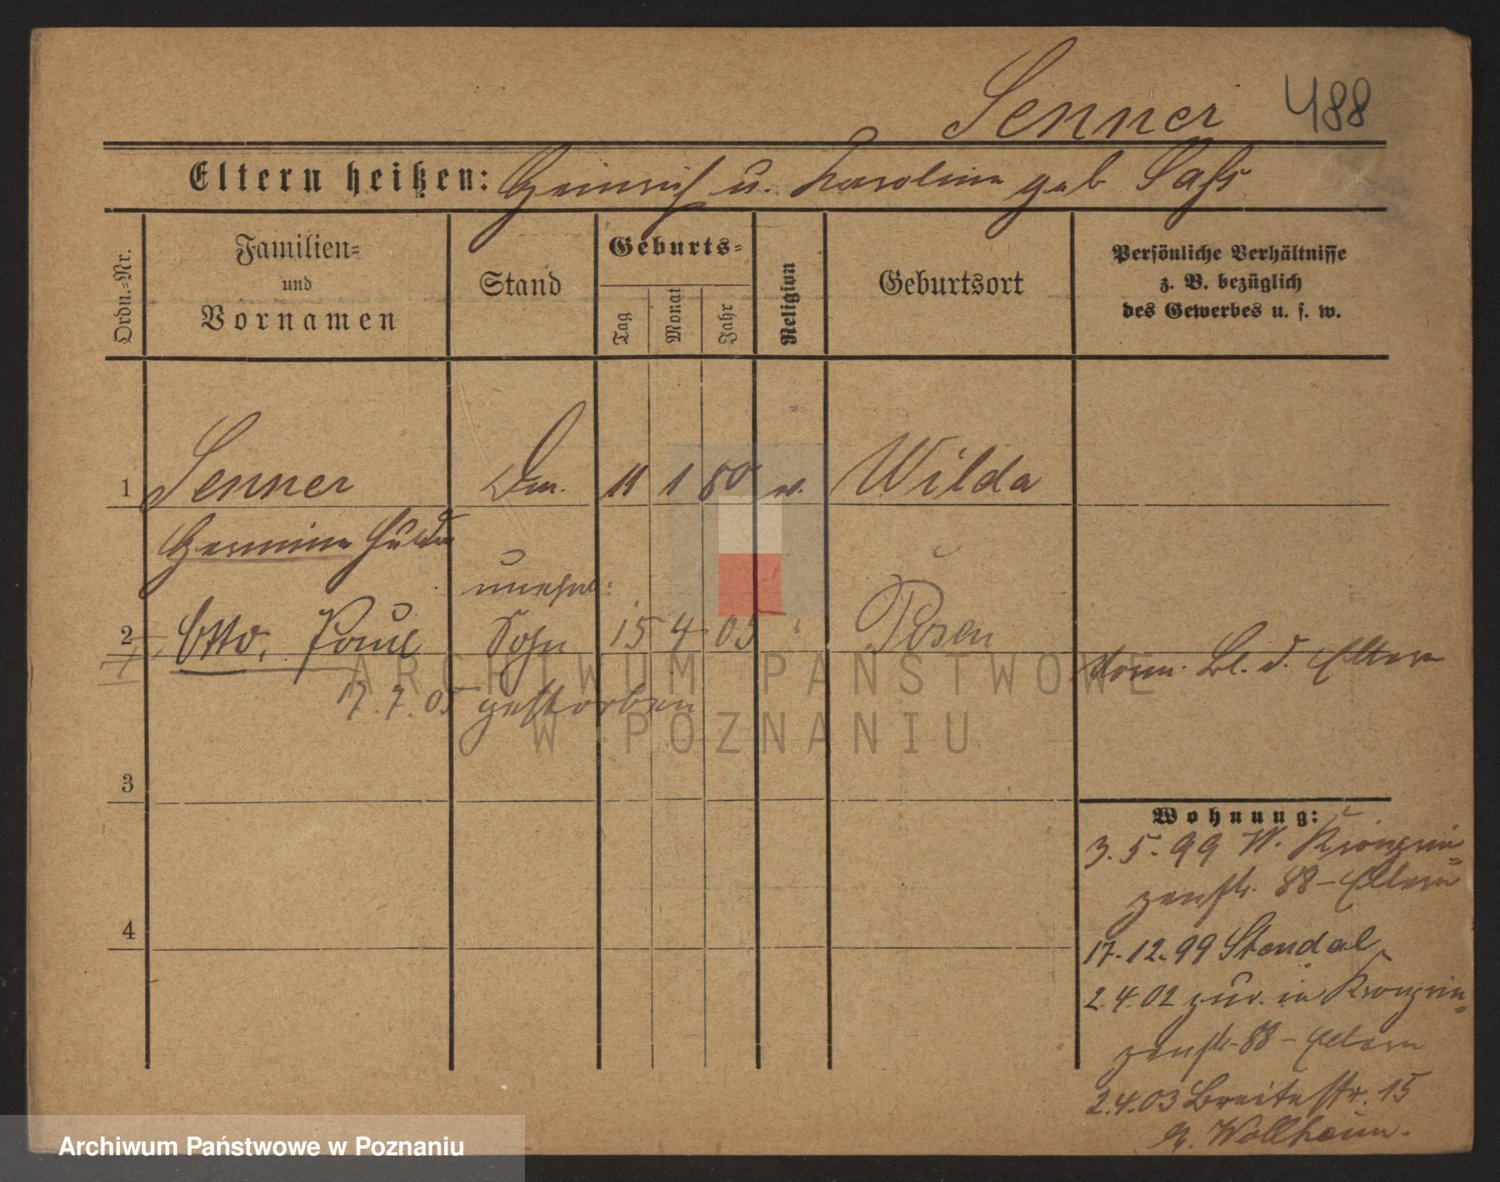 Senner 488
Eltern heißen: Heinrich u. Karoline geb Saß
Ordn.-Nr.
Familien-
und
Vornamen
Stand
Geburts-
Tag
Monat
Jahr
Religion
Geburtsort
Persönliche Verhältnisse
z. B. bezüglich
des Gewerbes u. s. w.
1 Senner 11 1 80 Wilda
Hermine Hulda
unehel:
2 Otto, Paul Sohn 15 4 05 Posen
Bl. d. Eltern
17.7.05 gestorben
3
Wohnung:
3.5.99 W. Kronprin=
zenstr. 88 - Eltern
4
17.12.99 Stendal
2.4.02 zur. in Kronprin=
zenstr. 88 - Eltern
2.4.03 Breitestr. 15
Wollheim.
ARCHIWUM PAŃSTWOWE
W POZNANIU
Archiwum Państwowe w Poznaniu